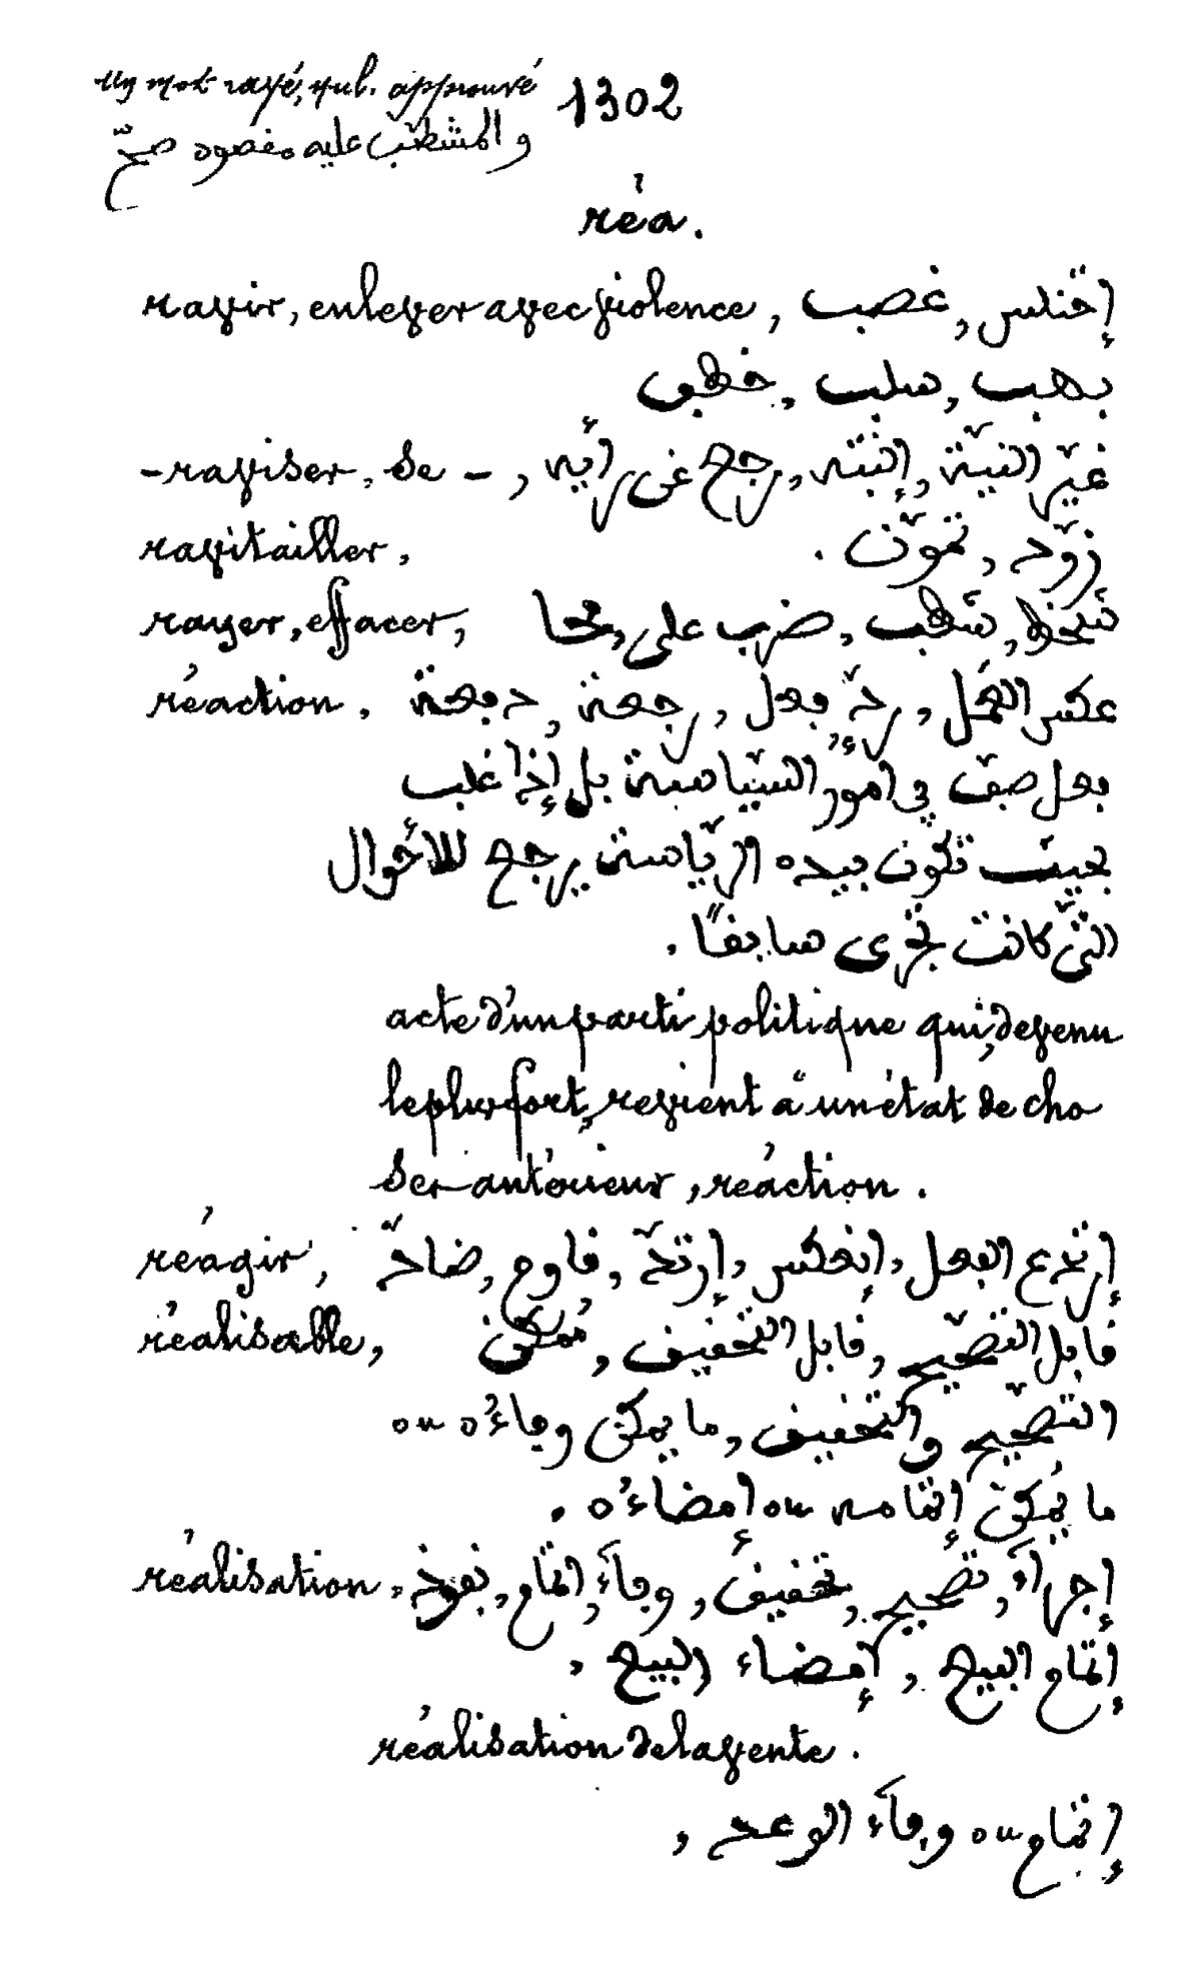 un mot rayé, nul. approuvé 1302
والمشطّب عليه مقصود صحّ
réa.
ravir, enlever avec violence, إختلس, غصب
نهب, سلب, خطف
-raviser, se -, غيّر النيّة, إنتبه, رجع عن رأيه
ravitailler, زوّد, تموّن.
rayer, effacer, شخط, شطب, ضرب على, محا
réaction. عكس العمل, ردّ فعل, رجعة, دفعة
فعل صفّ في أمور السّياسة بل إذا غلب
بحيث تكون بيده الرّياسة يرجع للأحوال
التّي كانت تجري سابقًا.
acte d'un parti politique qui, devenu
le plus fort, revient à un état de cho
ses antérieur, réaction.
réagir, إرتدع الفعل, إنعكس, إرتدّ, قاوم, ضادّ
réalisable, قابل التّصحيح, قابل التّحقيق, مُمكن
التّصحيح والتّحقيق, ما يمكن وفاءُه ou
ما يُمكن إتمامه ou إمضاءُه.
réalisation, إجراء, تصحيح, تحقيق, وفاء, إتمام, نفوذ
إتمام البيع, إمضاء البيع,
réalisation de la vente.
إتمام ou وفاء الوعد,